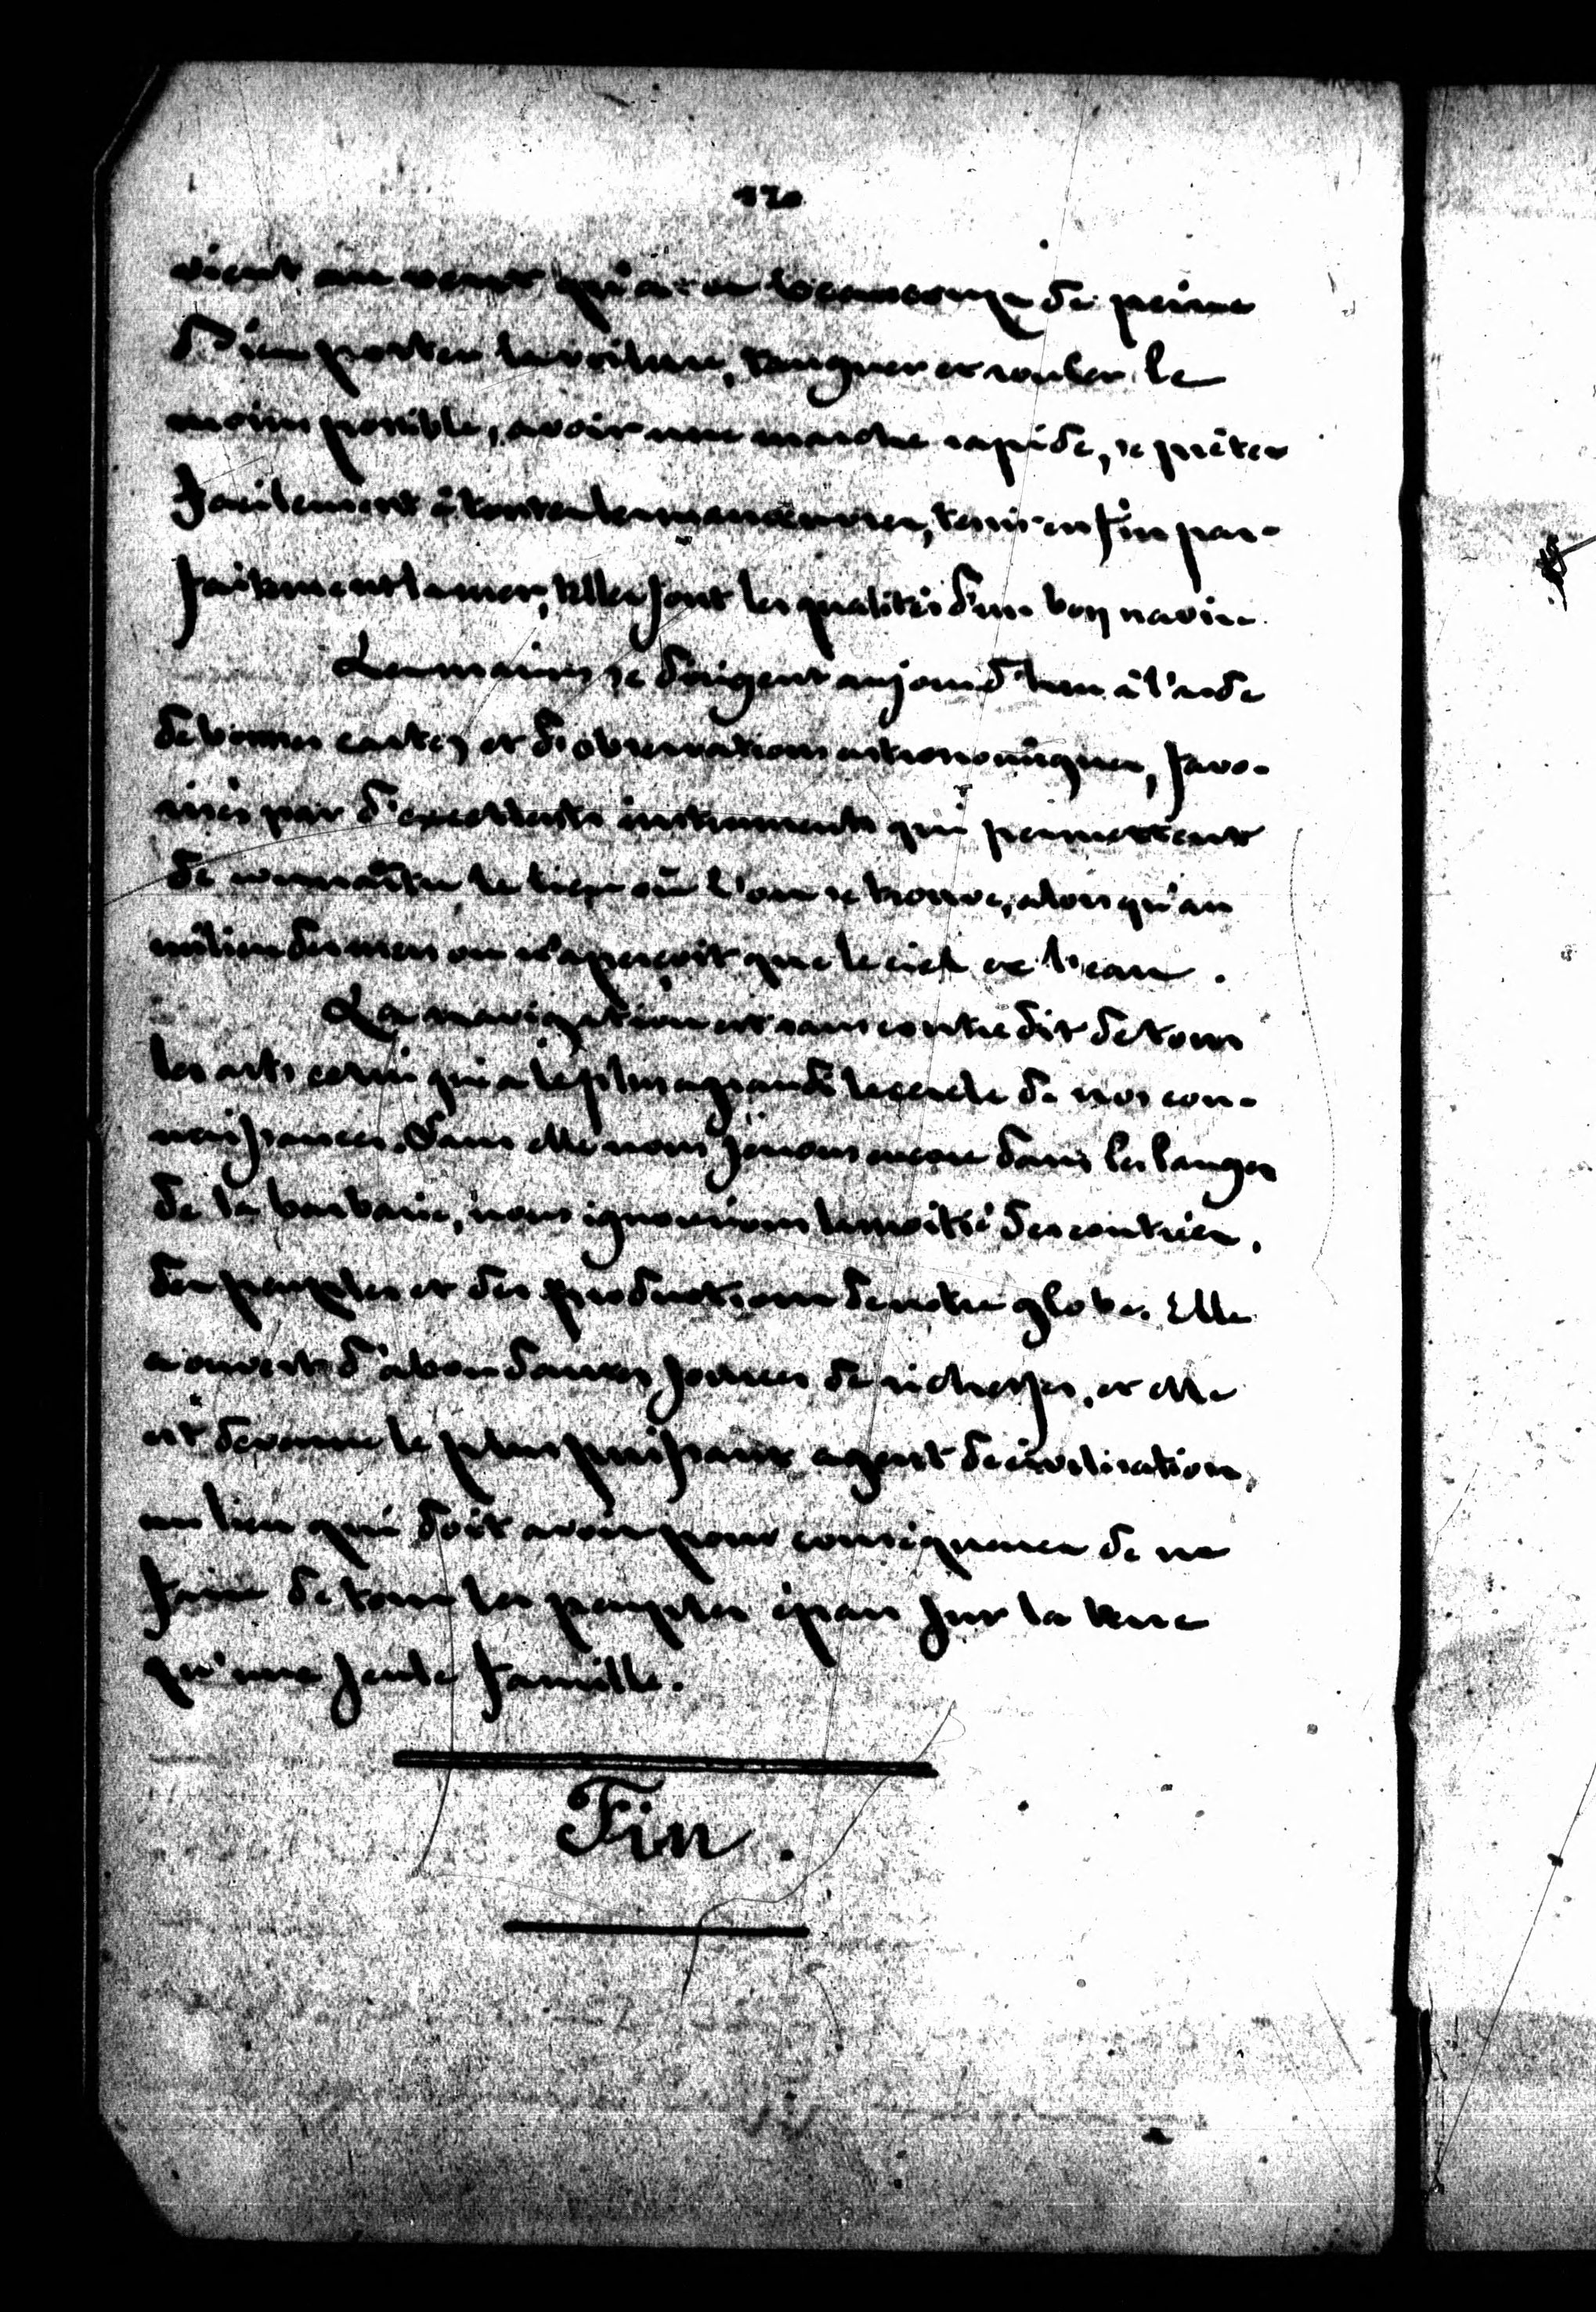 120
vient au vent qu'avec beaucoup de peine
Bien porter la voilure, tanguer et rouler le
moins possible, avoir une marche rapide, se prêter
facilement à toutes les manœuvres, tenir enfin par-
faitement la mer, telles sont les qualités d'un bon navire
Les marins se dirigent aujourd'hui à l'aide
de bonnes cartes et d'observations astronomiques, favo-
risés par d'excellents instruments qui permettent
de connaître le lieu où l'on se trouve, alors qu'au
milieu des mers on n'aperçoit que le ciel et l'eau.
La navigation est sans contredit de tous
les arts celui qui a le plus agrandi le cercle de nos con-
naissances. Sans elle nous serions encore dans les langes
de la barbarie, nous ignorerions la moitié des contrées,
des peuples et des productions de notre globe. Elle
a ouvert d'abondantes sources de richesses, et elle
est devenue le plus puissant agent de civilisation,
un lien qui doit avoir pour conséquence de ne
faire de tous les peuples épars sur la terre
qu'une seule famille.
Fin.